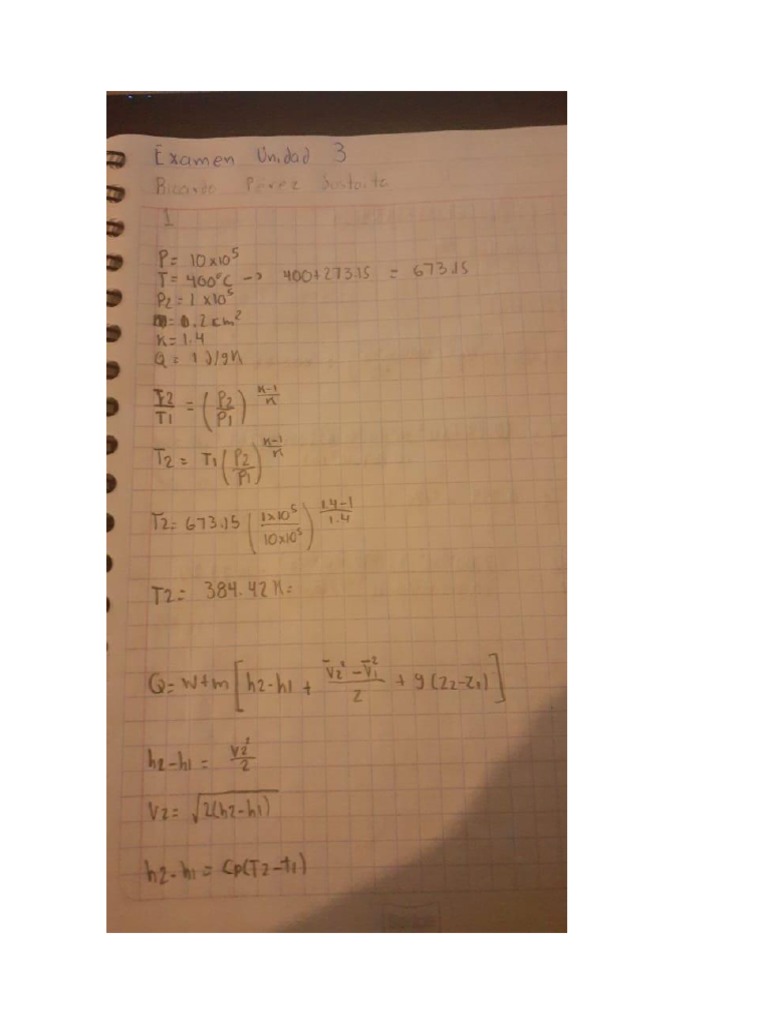 Examen Unidad 3
Ricardo Perez
1
P= 10x10⁵
T= 400°C -> 400+273.15 = 673.15
P2=1x10⁵
0.2cm²
K=1.4
Q= 1J/gK
T2/T1 = (P2/P1)^(K-1/K)
T2= T1(P2/P1)^(K-1/K)
T2= 673.15 (1x10⁵/10x10⁵)^(1.4-1/1.4)
T2= 384.42K=
Q= W+m[h2-h1 + (V̄2²-V̄1²)/2 + g(Z2-Z1)]
h2-h1= V2²/2
V2= √2(h2-h1)
h2-h1= Cp(T2-t1)